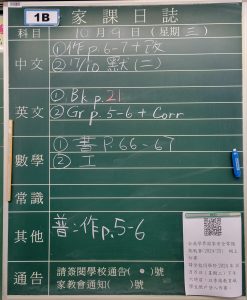 1B
家課日誌
科目 10月9日(星期三)
中文 ①作p.6-7+改
②17/10 默(二)
英文 ①Bk p.21
②Gr p.5-6 + Corr
數學 ①書P.66-67
②工
常識
其他 普:作p.5-6
通告 請簽閱學校通告( • )號
家教會通知( )號